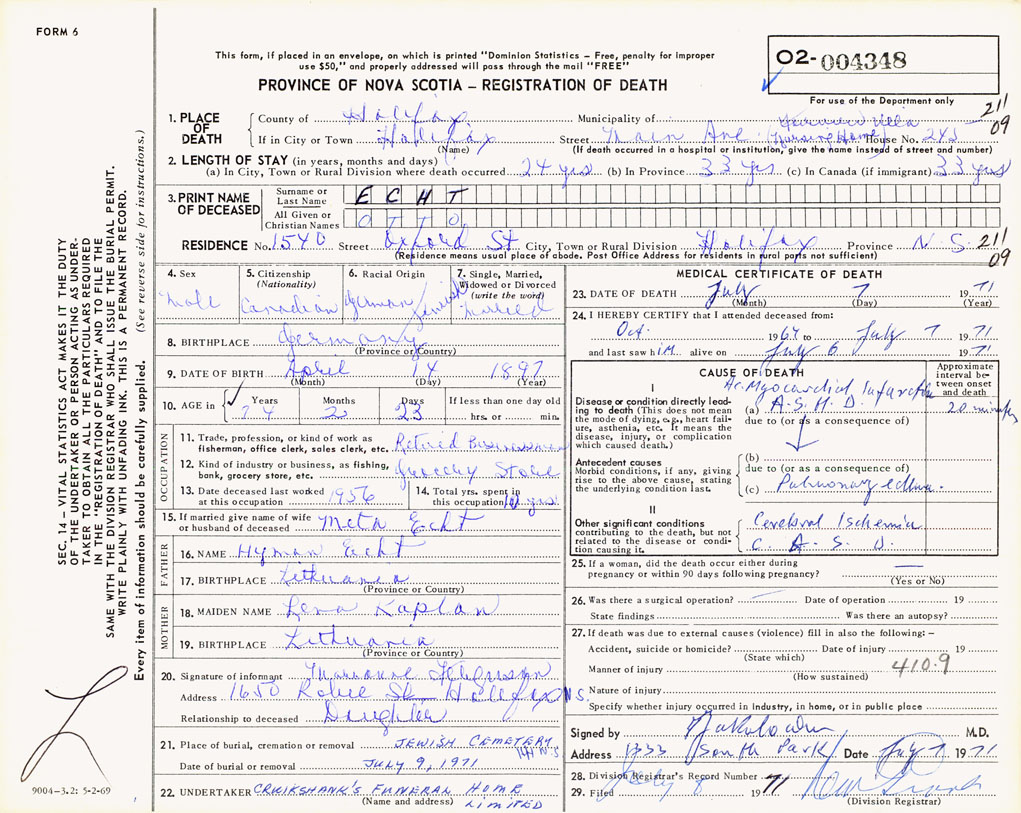 FORM 6
This form, if placed in an envelope, on which is printed "Dominion Statistics – Free, penalty for improper
use $50," and properly addressed will pass through the mail "FREE"
PROVINCE OF NOVA SCOTIA – REGISTRATION OF DEATH
02-004348
For use of the Department only
211
09
1. PLACE OF DEATH
County of Halifax Municipality of Villa
If in City or Town Halifax Street Main Ave (Nursing Home) House No. 245
(Name) (If death occurred in a hospital or institution, give the name instead of street and number)
2. LENGTH OF STAY (in years, months and days)
(a) In City, Town or Rural Division where death occurred 24 yrs (b) In Province 33 yrs (c) In Canada (if immigrant) 33 yrs
3. PRINT NAME OF DECEASED
Surname or Last Name ECHT
All Given or Christian Names OTTO
RESIDENCE No. 1540 Street Oxford St City, Town or Rural Division Halifax Province N.S. 211
09
(Residence means usual place of abode. Post Office Address for residents in rural parts not sufficient)
4. Sex
Male
5. Citizenship
(Nationality)
Canadian
6. Racial Origin
German / Jewish
7. Single, Married,
Widowed or Divorced
(write the word)
Married
8. BIRTHPLACE Germany
(Province or Country)
9. DATE OF BIRTH April 14 1897
(Month) (Day) (Year)
10. AGE in
Years Months Days If less than one day old
74 2 23 hrs. or min.
OCCUPATION
11. Trade, profession, or kind of work as
fisherman, office clerk, sales clerk, etc. Retired Businessman
12. Kind of industry or business, as fishing,
bank, grocery store, etc. Grocery Store
13. Date deceased last worked
at this occupation 1956
14. Total yrs. spent in
this occupation 10 yrs
15. If married give name of wife
or husband of deceased Meta Echt
FATHER
16. NAME Hyman Echt
17. BIRTHPLACE Lithuania
(Province or Country)
MOTHER
18. MAIDEN NAME Lena Kaplan
19. BIRTHPLACE Lithuania
(Province or Country)
20. Signature of informant Marianne Ferguson
Address 1650 Robie St Halifax N.S.
Relationship to deceased Daughter
21. Place of burial, cremation or removal JEWISH CEMETERY
N.S
Date of burial or removal JULY 9, 1971
22. UNDERTAKER CRUIKSHANK'S FUNERAL HOME
(Name and address) LIMITED
MEDICAL CERTIFICATE OF DEATH
23. DATE OF DEATH July 7 1971
(Month) (Day) (Year)
24. I HEREBY CERTIFY that I attended deceased from:
Oct. 1967 to July 7 1971
and last saw him alive on July 6 1971
CAUSE OF DEATH
Approximate interval between onset and death
I
Ac. Myocardial Infarction
Disease or condition directly leading to death (This does not mean the mode of dying, e.g., heart failure, asthenia, etc. It means the disease, injury, or complication which caused death.)
(a) A.S.H.D. 20 minutes
due to (or as a consequence of)
Antecedent causes
Morbid conditions, if any, giving rise to the above cause, stating the underlying condition last.
(b)
due to (or as a consequence of)
(c) Pulmonary edema.
II
Other significant conditions contributing to the death, but not related to the disease or condition causing it.
Cerebral Ischemia
C. A. S. D.
25. If a woman, did the death occur either during
pregnancy or within 90 days following pregnancy? —
(Yes or No)
26. Was there a surgical operation? — Date of operation 19
State findings Was there an autopsy?
27. If death was due to external causes (violence) fill in also the following: –
Accident, suicide or homicide? Date of injury 19
(State which)
Manner of injury 410.9
(How sustained)
Nature of injury
Specify whether injury occurred in industry, in home, or in public place
Signed by M.D.
Address 1333 South Park Date July 7 1971
28. Division Registrar's Record Number
29. Filed July 8 1971
(Division Registrar)
SEC. 14 – VITAL STATISTICS ACT MAKES IT THE DUTY
OF THE UNDERTAKER OR PERSON ACTING AS UNDER-
TAKER TO OBTAIN ALL THE PARTICULARS REQUIRED
IN THE "REGISTRATION OF DEATH" AND TO FILE THE
SAME WITH THE DIVISION REGISTRAR WHO SHALL ISSUE THE BURIAL PERMIT.
WRITE PLAINLY WITH UNFADING INK. THIS IS A PERMANENT RECORD.
Every item of information should be carefully supplied. (See reverse side for instructions.)
9004-3.2: 5-2-69